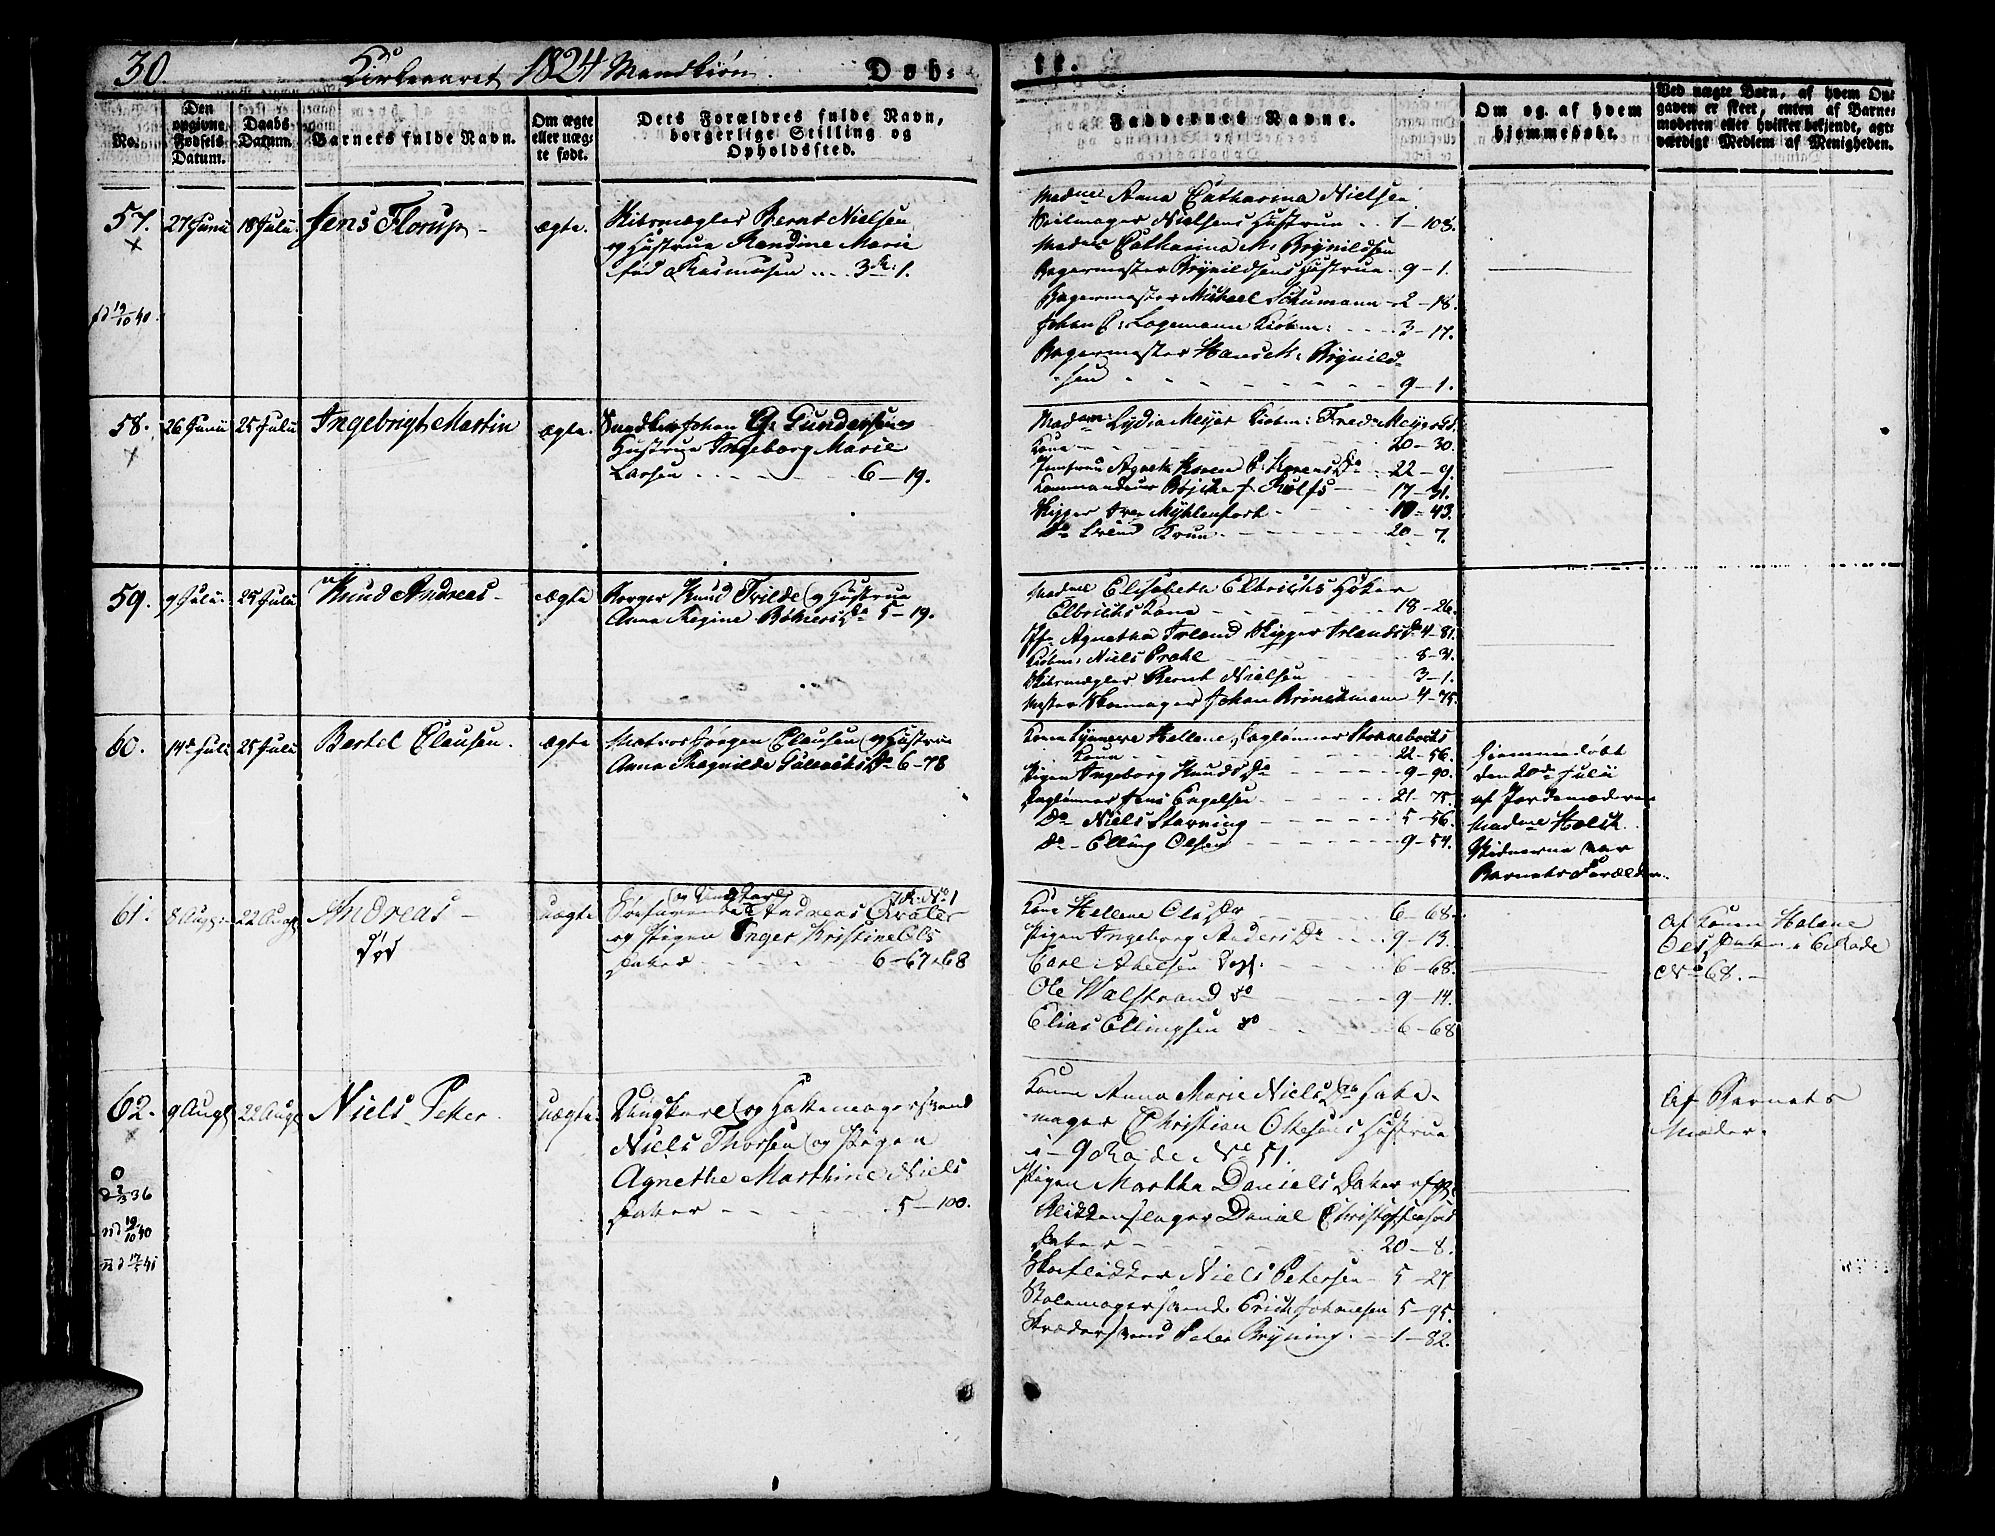 30.
Kirkeaaret 1824 Mandkiøn.
Døb-
te.
No.
Den
opgivne
Fødsels
Datum.
Daabs
Datum.
Barnets fulde Navn.
Om ægte
eller uæg-
te født.
Dets Forældres fulde Navn,
borgerlige Stilling og
Opholdssted.
Faddernes Navne.
Om og af hvem
hjemmedøbt.
Ved uægte Barn, af hvem Op-
gaven er skeet, enten af Barne-
moderen eller hvilket bekjendt, agt-
værdigt Medlem af Menigheden.
57.
27 Junii
18 Julii
Jens Florup
ægte.
Bernt Nielsen
og Hustrue Randine Marie
fød Rasmusen ... 3 R. 1.
Madme Anna Catharina Nielsen
Seilmager Nielsens Hustrue .. 1-108.
Madme Catharina M. Brynildsen
Bagermester Brynildsens Hustrue. 9-1.
Bagermester Michael Schumann 2-18.
Johan C: Lagemann Kiøbm: 3-17.
Bagermester Hans K: Brynild-
sen 9-1.
58.
26 Junii
25 Julii
Ingebrigt Martin
ægte.
Johan G: Gundersen
Hustrue Ingeborg Marie
Larsen 6-19.
Madme Lydia Meyer Kiøbm: Fred: Meyers
Kone 20-30.
Jomfrue Agnete Koren P. Korens Dr 22-9.
Kommandeur 17-31.
Skipper Iver Myhlenfort 10-43.
Do Svend Krun 20-7.
59.
9 Julii
25 Julii
Knud Andreas
ægte
Borger Knud Tvilde og Hustrue
Anna Regine Bøhiers Dr 5-19.
Madme Elisabeth Elbrichs Høker
Elbrichs Kone 18-26.
Jfr Agnetha Irland Skipper Irlands Dr 4-81.
Kiøbm: Niels Prahl 8-31.
Bernt Nielsen 3-1.
Mester Skomager Johan Brinchmann 4-75.
60.
14de Julii
25 Julii
Bertel Clausen.
ægte
Matros Jørgen Clausen og Hustrue
Anna Ragnilde Gullichs Dr 6-78
Kone Synneve Hellene, Daglønner
Kone 22-56.
Pigen Ingeborg Knuds Dr 9-90.
Dagløner Jens Engelsen 21-75.
Do Niels Starning 5-56.
Do Elling Olsen 9-54.
Hjemmedøbt
den 20de Julii
af Jordemoderen
Madme Holck.
Vidnerne var
Barnets Forældre.
61.
8 Aug:
22 Aug:
Andreas
død
uægte
og Ungkarl
7 R. No 1
Søefarende Andreas
og Pigen Inger Kristine Ols
Datter 6-67 & 68
Kone Hellene Ols Dr 6-68.
Pigen Ingeborg Anders Dr 9-13.
Carl Axelsen 6-68.
Ole Walstrand do 9-14.
Elias Ellingsen do 6-68
Af Konen Helene
Ols Datter i 6 Rode
No 68.
62.
9 Aug:
22 Aug:
Niels Peter
uægte.
Ungkarl og Hattemagersvend
Niels Thorsen og Pigen
Agnethe Marthine Niels
Datter 5-100.
Kone Anna Marie Niels Dr Hatte-
mager Christian Ottesens Hustrue
i 9 Rode No 51.
Pigen Martha Daniels Datter
Daniel Christophersens
Datter 20-8.
Skoflikker Niels Petersen 5-27
Stolemagersvend Erich Johannesen 5-95.
Skrædersvend Peter Bryning. 1-82.
Af Barnets
Moder.